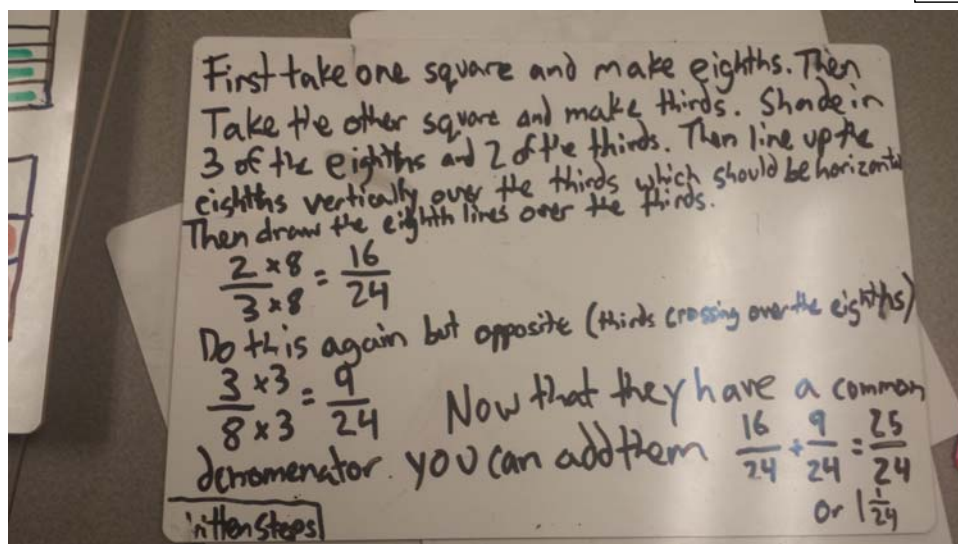 First take one square and make eighths. Then
Take the other square and make thirds. Shade in
3 of the eighths and 2 of the thirds. Then line up the
eighths vertically over the thirds which should be horizontal
Then draw the eighth lines over the thirds.
2 × 8 / 3 × 8 = 16/24
Do this again but opposite (thirds crossing over the eighths)
3 × 3 / 8 × 3 = 9/24 Now that they have a common
denromenator. you can add them 16/24 + 9/24 = 25/24
or 1 1/24
ritten Steps